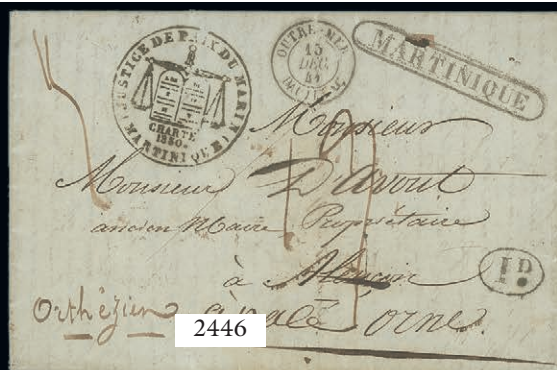 JUSTICE DE PAIX DU MARIN
CHARTE
1830.
(MARTINIQUE)
OUTRE-MER
15
DEC
41
MARTINIQUE
Monsieur
Monsieur D'avout
ancien Maire Propriétaire
à Alençon
1D
Orthézien
Orne.
2446